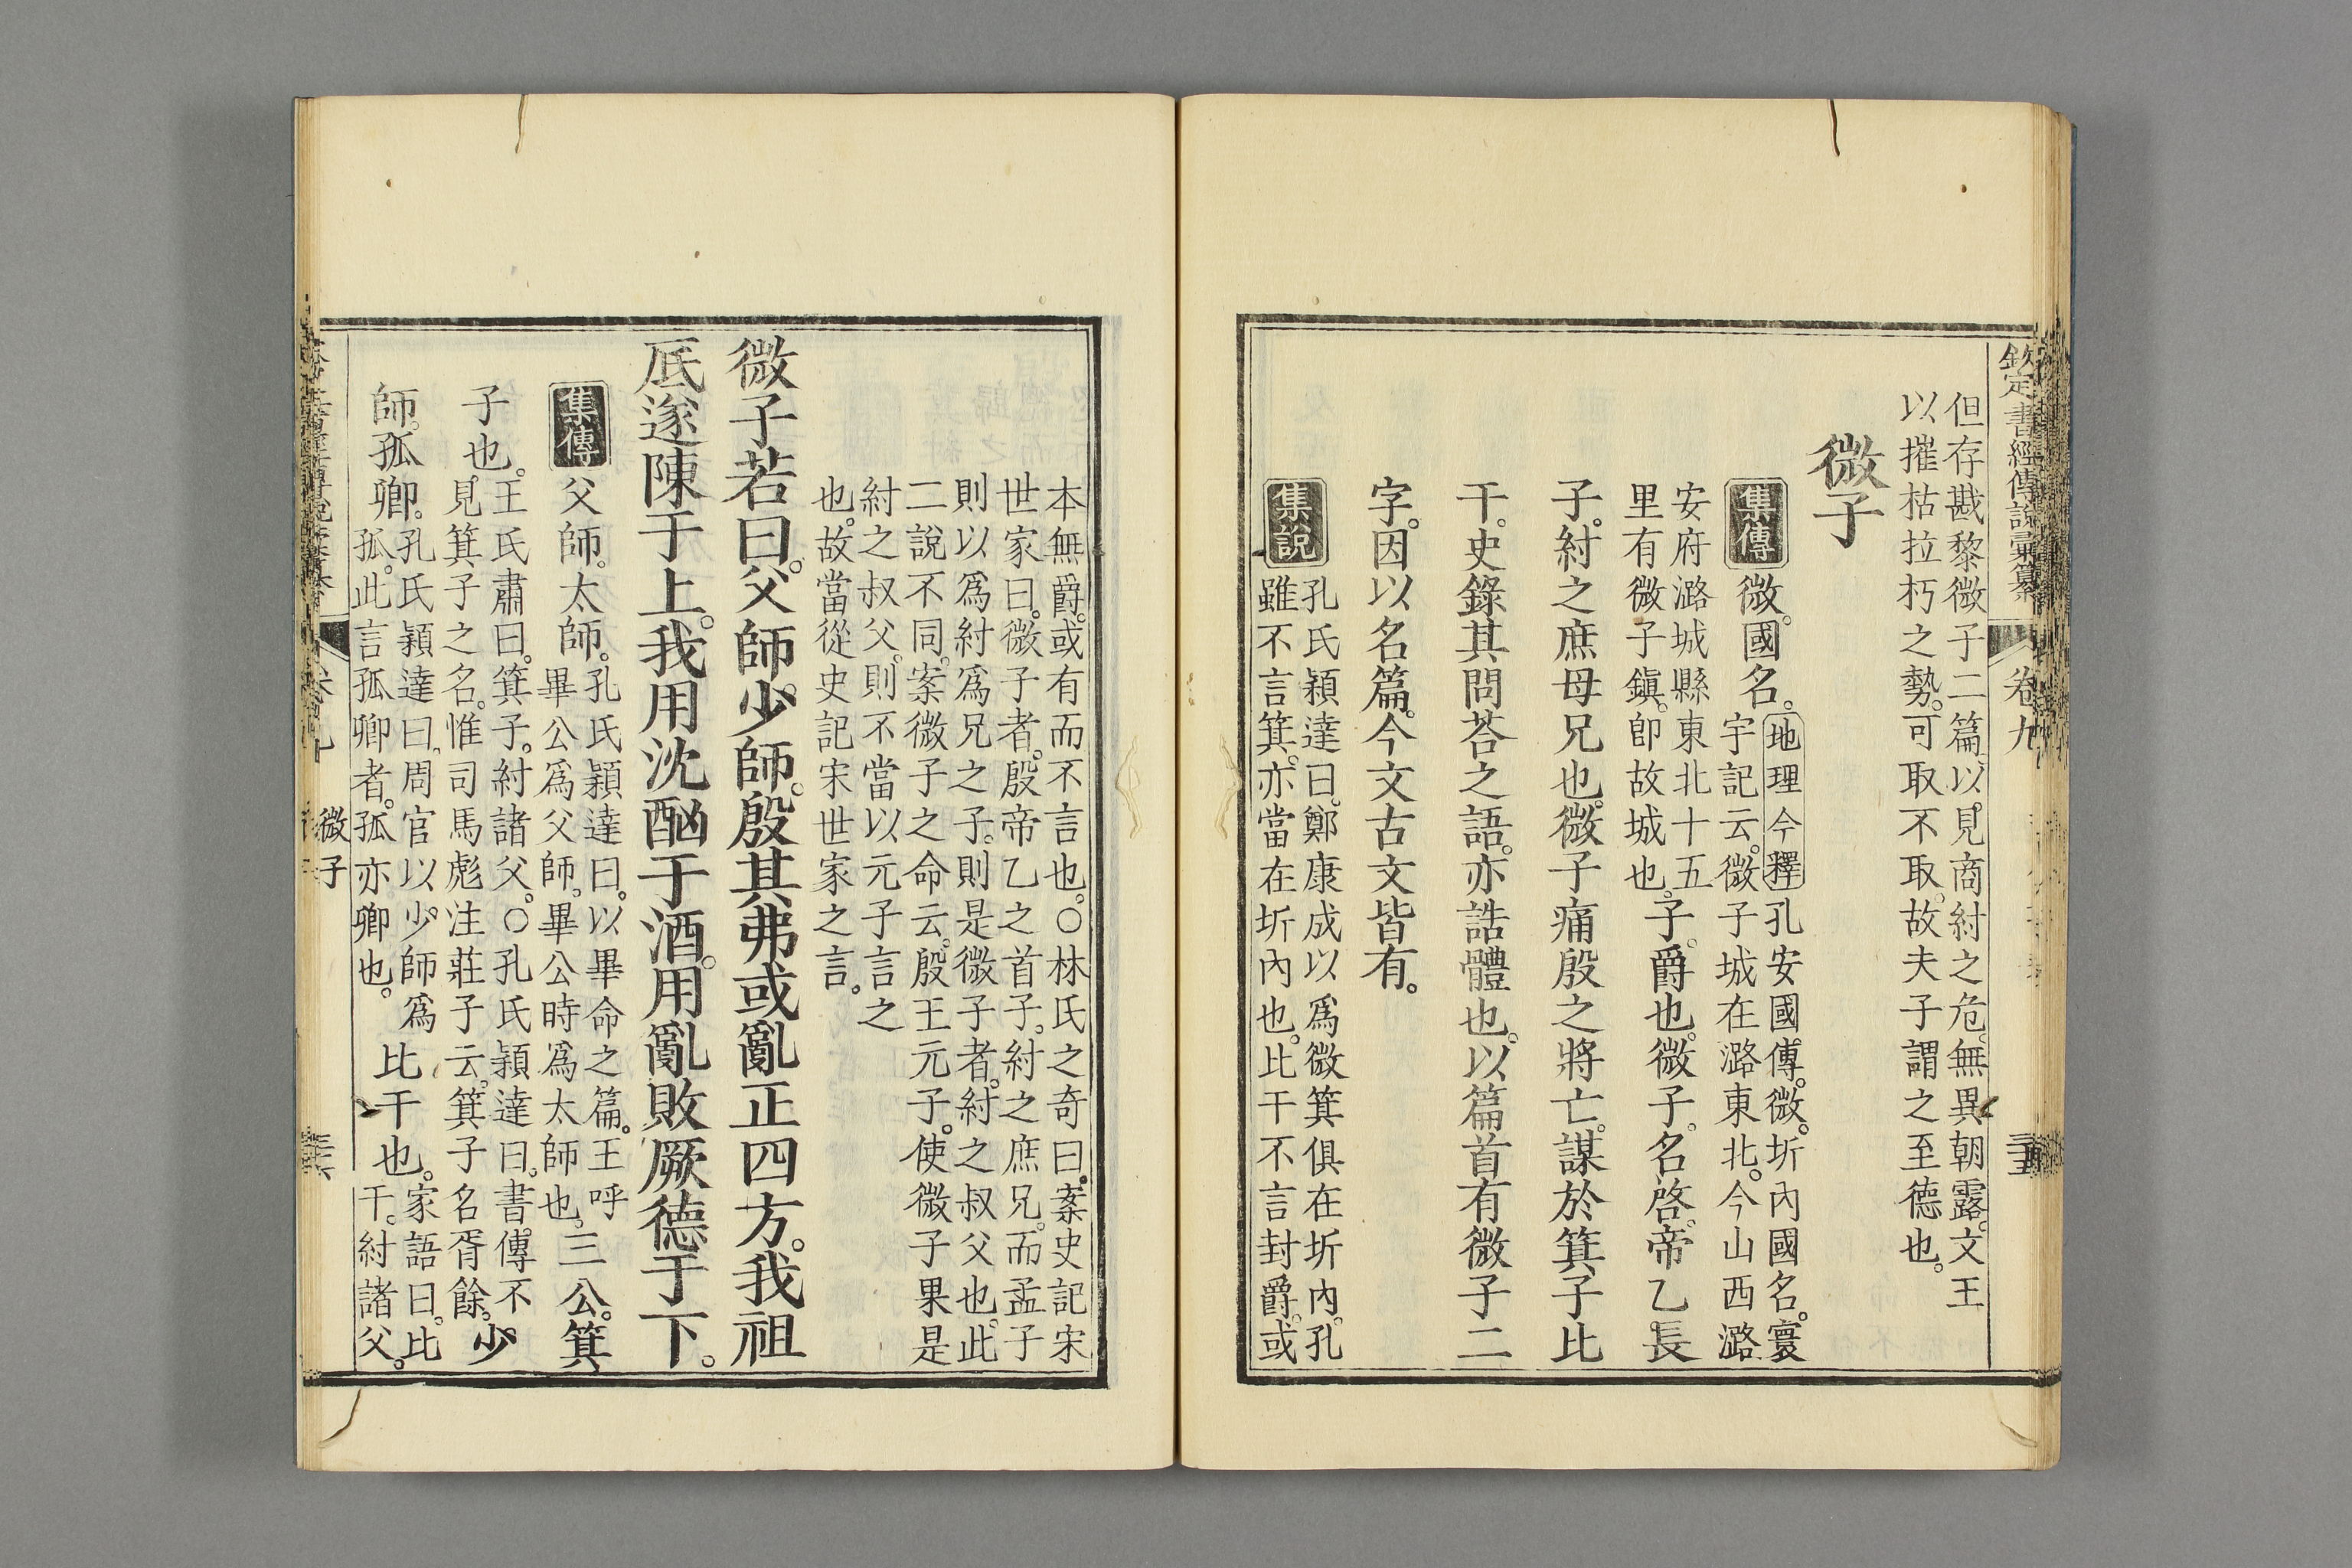 欽定書經傳說彙纂 卷九
但存戡黎微子二篇。以見商紂之危。無異朝露。文王
以摧枯拉朽之勢。可取不取。故夫子謂之至德也。
微子
集傳 微。國名。
地理今釋 孔安國傳。微。圻內國名。寰
宇記云。微子城在潞東北。今山西潞
安府潞城縣東北十五
里有微子鎭。卽故城也。
子。爵也。微子。名啓。帝乙長
子。紂之庶母兄也。微子痛殷之將亡。謀於箕子比
干。史錄其問荅之語。亦誥體也。以篇首有微子二
字。因以名篇。今文古文皆有。
集說 孔氏穎達曰。鄭康成以爲微箕俱在圻內。孔
雖不言箕。亦當在圻內也。比干不言封爵。或
本無爵。或有而不言也。○林氏之奇曰。案史記宋
世家曰。微子者。殷帝乙之首子。紂之庶兄。而孟子
則以爲紂爲兄之子。則是微子者。紂之叔父也。此
二說不同。案微子之命云。殷王元子。使微子果是
紂之叔父。則不當以元子言之
也。故當從史記宋世家之言。
微子若曰。父師少師。殷其弗或亂正四方。我祖
厎遂陳于上。我用沈酗于酒。用亂敗厥德于下。
集傳 父師。太師。
孔氏穎達曰。以畢命之篇。王呼
畢公爲父師。畢公時爲太師也。
三公。箕
子也。
王氏肅曰。箕子。紂諸父。○孔氏穎達曰。書傳不
見箕子之名。惟司馬彪注莊子云。箕子名胥餘。
少
師。孤卿。
孔氏穎達曰。周官以少師爲
孤。此言孤卿者。孤亦卿也。
比干也。
家語曰。比
干。紂諸父。
微子